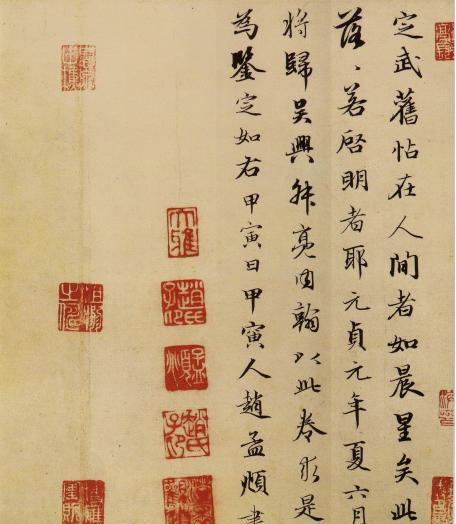 定武舊帖在人間者如晨星矣此
落〻若啓明者耶元貞元年夏六月
將歸吳興叔亮内翰以此卷求是
為鑒定如右甲寅日甲寅人趙孟頫書
大雅
趙氏子昂